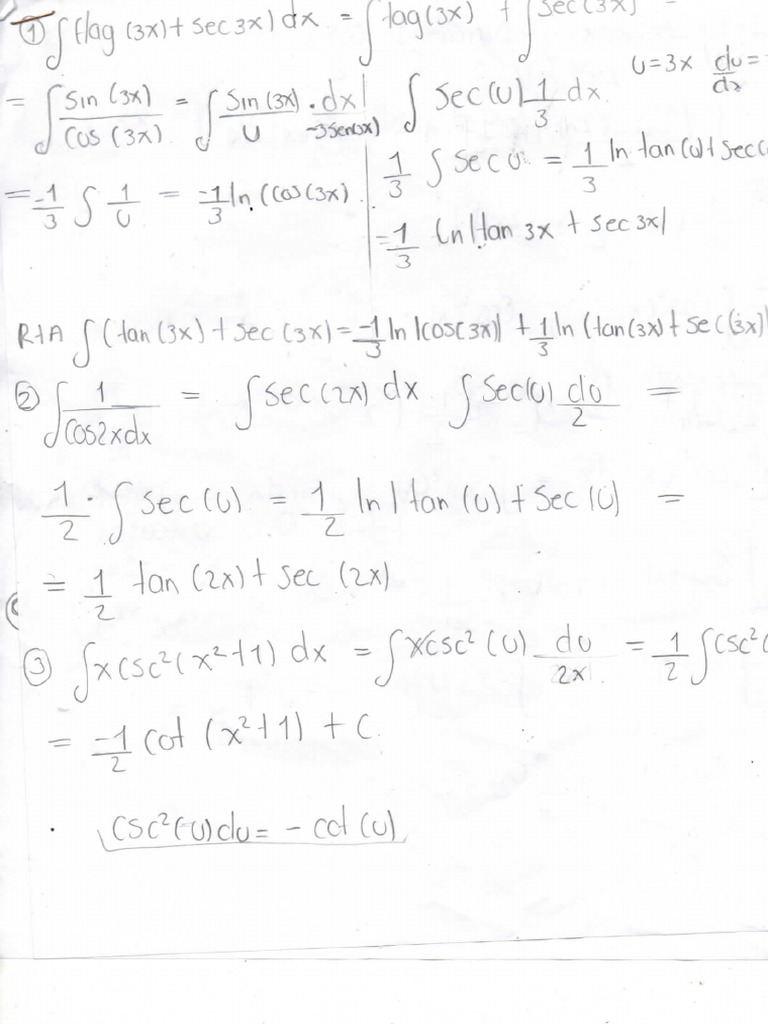 ① ∫(tag (3x) + sec 3x) dx = ∫ tag (3x) + ∫ sec (3x) =
u = 3x du/dx =
= ∫ sin (3x)/cos (3x) = ∫ sin (3x)/u · dx/-3sen(3x) ∫ sec(u) 1/3 dx.
= -1/3 ∫ 1/u = -1/3 ln (cos (3x) 1/3 ∫ sec u = 1/3 ln tan (u) + sec(
= 1/3 ln |tan 3x + sec 3x|
RtA ∫ (tan (3x) + sec (3x) = -1/3 ln |cos(3x)| + 1/3 ln (tan(3x) + sec (3x)|
② ∫ 1/cos2xdx = ∫ sec (2x) dx ∫ sec(u) du/2 =
1/2 · ∫ sec (u) = 1/2 ln | tan (u) + sec (u) =
= 1/2 tan (2x) + sec (2x)
③ ∫ x csc² (x²+1) dx = ∫ x csc² (u) du/2x = 1/2 ∫ csc² (
= -1/2 cot (x²+1) + c.
· csc² (u) du = - cot (u)